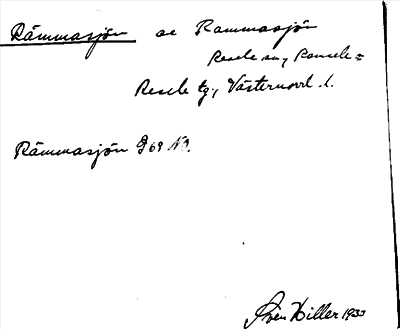 Rämmasjön ae Rammasjön
Resele sn, Ramsele =
Resele tg, Västernorrl. l.
Rämmasjön G 69 NO.
Sven Hiller 1933